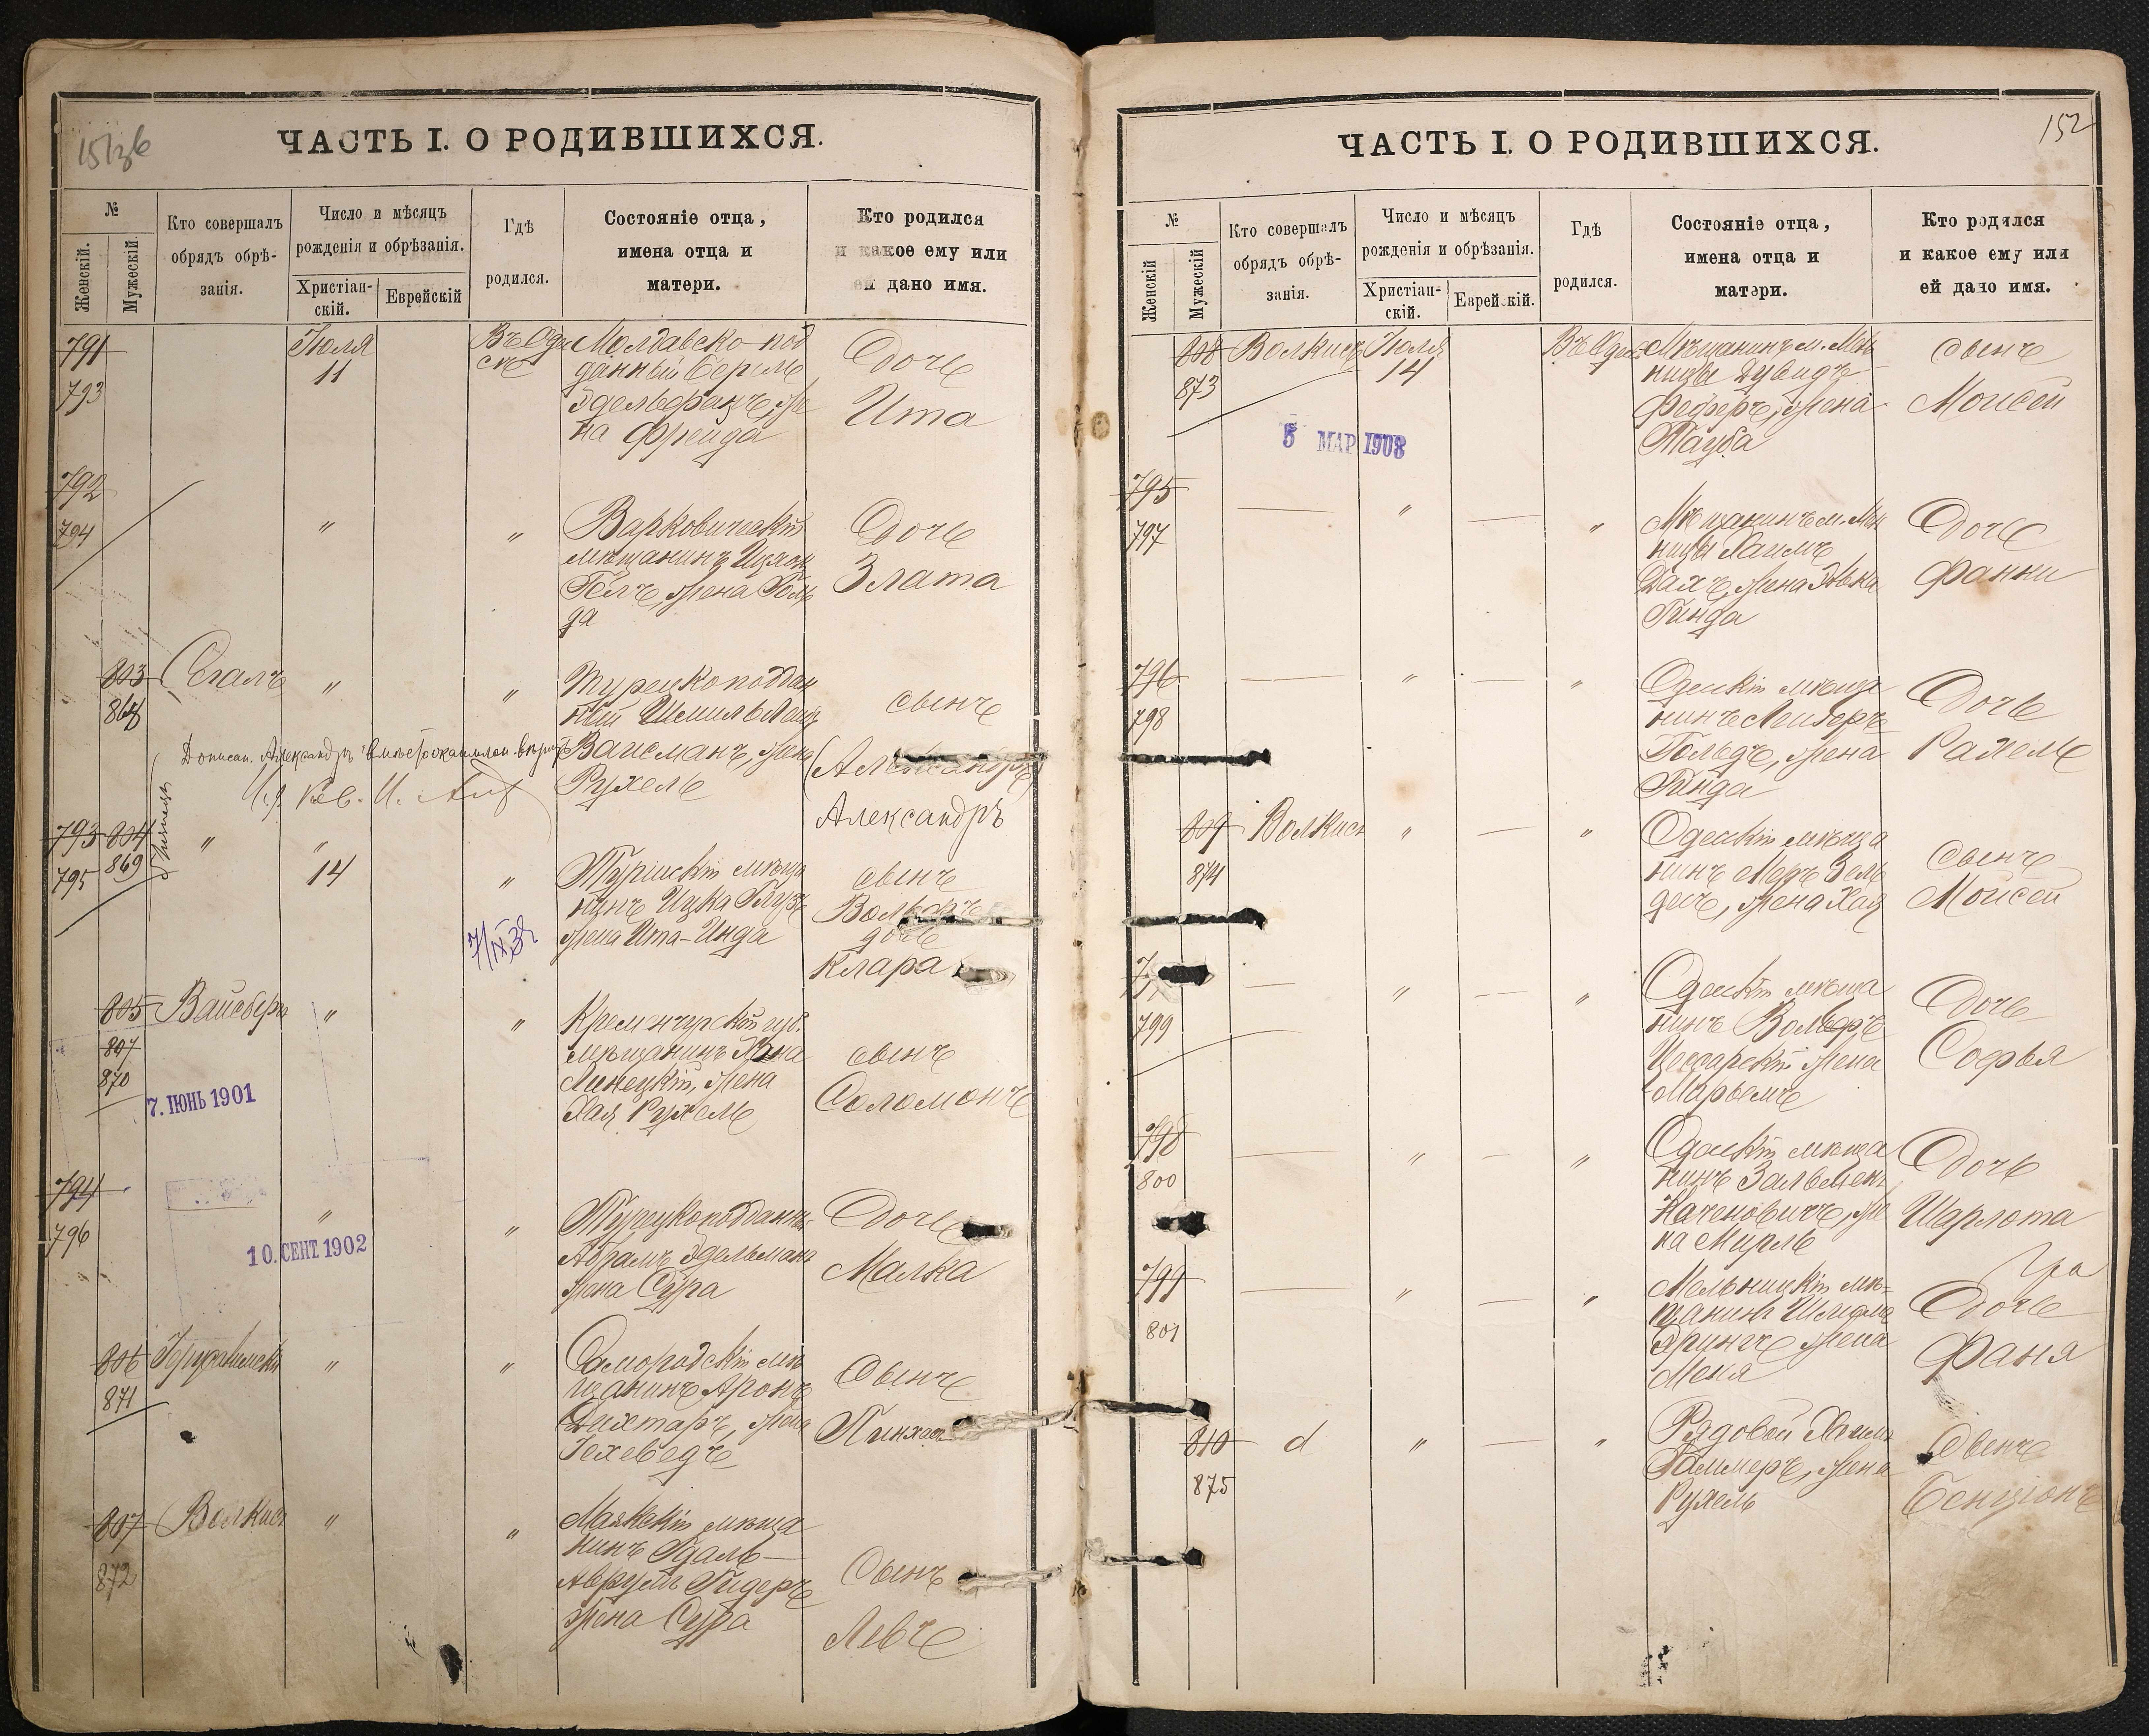 151об
ЧАСТЬ I. О РОДИВШИХСЯ.
№
Женскій.
Мужескій.
Кто совершалъ
обрядъ обрѣ-
занія.
Число и мѣсяцъ
рожденія и обрѣзанія.
Христіан-
скій.
Еврейскій
Гдѣ
родился.
Состояніе отца,
имена отца и
матери.
Кто родился
и какое ему или
ей дано имя.
791
793
Іюля
11
Въ Оде
ссѣ
Молдавско-под
данный Берель
Эдельферанъ, же
на Фрейда
Дочь
Ита
792
794
"
"
Варковическій
мѣщанинъ Ицхок
жена Голь
да
Дочь
Злата
803
868
Сегалъ
"
"
Турецкоподдан
ный Шмиль
Вайсманъ, жена
Рухель
сынъ
(Александръ)
Александръ
Дописан. Александръ вмѣсто
793 804
795 869
"
"
14
"
7/IX 32
Туріискій мѣща
нинъ Ицка
жена Ита-Инда
сынъ
Вольфъ
дочь
Клара
805
807
870
Вайсберъ
"
"
7. ІЮНЬ 1901
Кременчугской губ.
мѣщанинъ
Линецкій, жена
Хая Рухель
сынъ
Соломонъ
794
796
"
"
10. СЕНТ. 1902
Турецкоподданны
Абрамъ Эдельманъ
жена Сура
Дочь
Малка
806
871
"
"
Самородскій мѣ
щанинъ Аронъ
Дихтаръ, жена
Іохеведъ
Сынъ
Пинхас
807
872
Волкис
"
"
Маякскій мѣща
нинъ Гдаль-
Аврумъ Гидеръ
жена Сура
Сынъ
Левъ
152
ЧАСТЬ I. О РОДИВШИХСЯ.
№
Женскій
Мужескій
Кто совершалъ
обрядъ обрѣ-
занія.
Число и мѣсяцъ
рожденія и обрѣзанія.
Христіан-
скій.
Еврейскій.
Гдѣ
родился.
Состояніе отца,
имена отца и
матери.
Кто родился
и какое ему или
ей дано имя.
808
873
Волкисъ
Іюля
14
5 МАР 1908
Въ Одес
Мѣщанинъ м. Меж
Дувидъ
Феферъ, жена
Тауба
сынъ
Моисей
795
797
"
"
Мѣщанинъ м. Меж
Хаимъ
жена
Гинда
Дочь
Фанни
796
798
"
"
Одесскій мѣща
нинъ Лейзеръ
Гольдъ, жена
Гинда
Дочь
Рахель
809
874
Волкис
"
"
Одесскій мѣща
нинъ Меръ Зель
децъ, жена Хая
сынъ
Мойсей
799
"
"
Одесскій мѣща
нинъ Вольфъ
жена
Марьемъ
Дочь
Софья
798
800
"
"
Одесскій мѣща
нинъ Зальмен
Каченовичъ, же
на Мирль
Дочь
Шарлота
799
801
"
"
Мельницкій мѣ-
щанинъ Шлема
жена
Меня
Дочь
Фаня
810
875
d
"
"
Рядовой Хаим
жена
Рухель
Сынъ
Бенціонъ